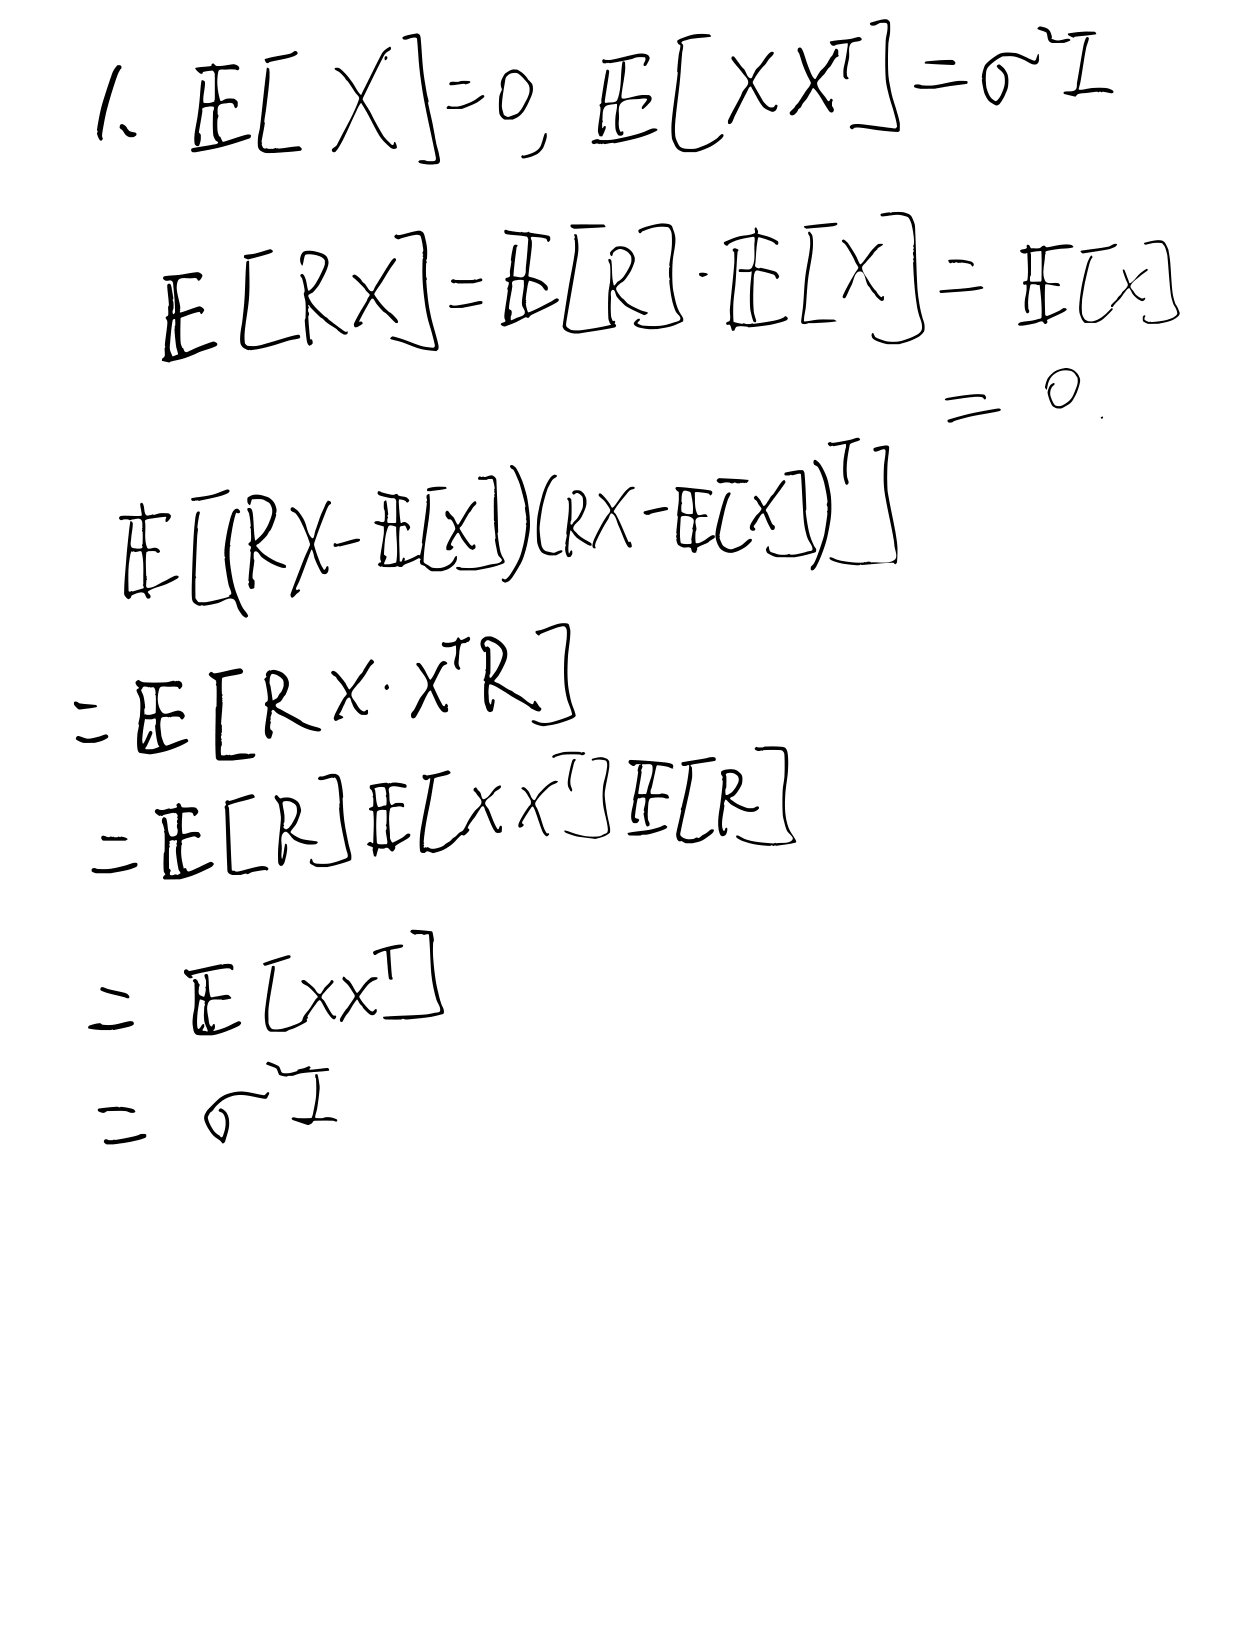 1. 𝔼[X]=0, 𝔼[XXᵀ]=σ²I
𝔼[RX]=𝔼[R]·𝔼[X]=𝔼[X]
=0.
𝔼[(RX-𝔼[X])(RX-𝔼[X])ᵀ]
=𝔼[RX·XᵀR]
=𝔼[R]𝔼[XXᵀ]𝔼[R]
=𝔼[XXᵀ]
=σ²I